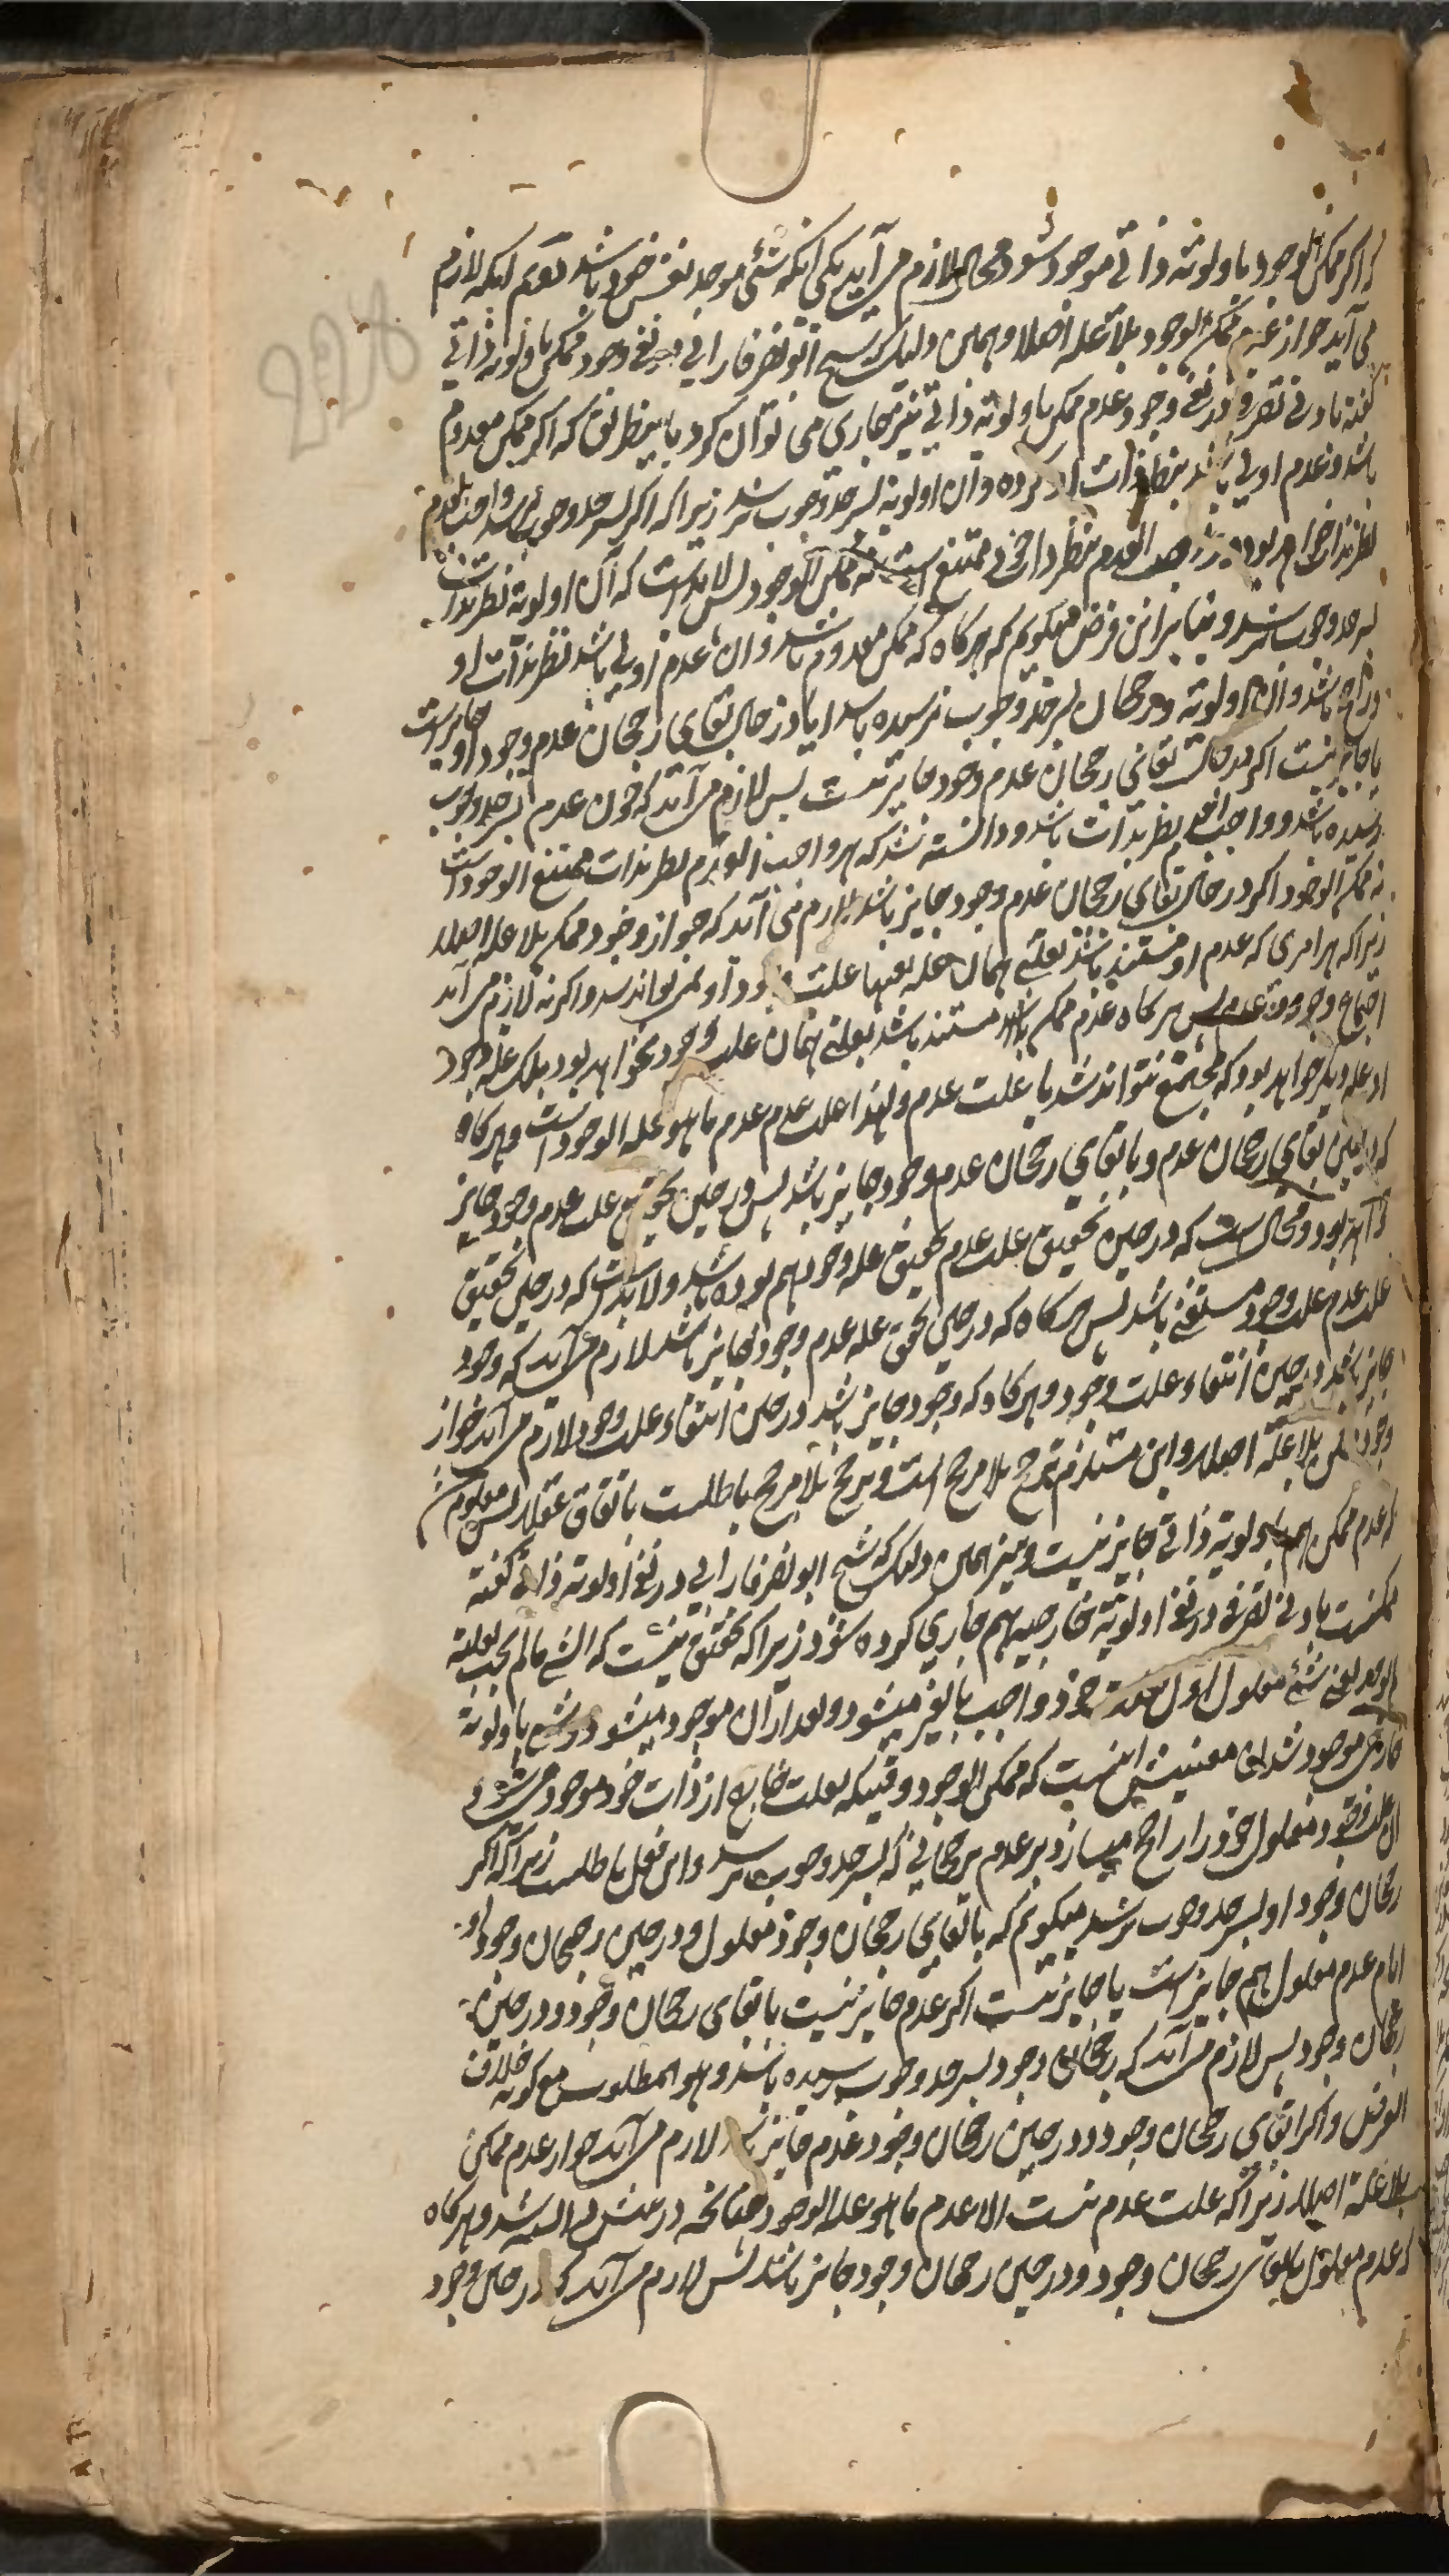 که اگر ممکن الوجود باولویة ذاتی موجود شود دو محال لازم می آید یکی آنکه شئ موجد نفس خود باشد دوم آنکه لازم
می آید جواز عدم ممکن الوجود بلا علة اصلا و همین دلیل که شیخ ابو نصر فارابی در نفی وجود ممکن باولویة ذاتی
گفته بادنی تصرف در نفی وجود عدم ممکن باولویة ذاتی نیز جاری می توان کرد باینطریق که اگر ممکن معدوم
باشد و عدم اولی باشد بنظر ذات او کرده و آن اولویة بسرحد وجوب نرسد زیرا که اگر بسرحد وجوب برسد واجب العدم
نظر بذات خواهد بود و واجب العدم بنظر ذات خود ممتنع است نه ممکن الوجود پس لابد است که آن اولویة نظر بذات
بسرحد وجوب نرسد و بنابراین فرض میگویم که هرگاه که ممکن معدوم باشد و آن عدم اولی باشد نظر بذات او
و راجح باشد و آن اولویة و رجحان بسرحد وجوب نرسیده باشد ایا در حال بقای رجحان عدم وجود او جایز است
یا جایز نیست اگر در حالت بقای رجحان عدم وجود جایز نیست پس لازم می آید که چون عدم بسرحد وجوب
رسیده باشد و واجب العدم بنظر بذات باشد و دانسته شد که هر واجب العدم نظر بذات ممتنع الوجود است
نه ممکن الوجود اگر در حال بقای رجحان عدم وجود جایز باشد لازم می آید که جواز وجود ممکن بلا علة اصلا
زیرا که هر امری که عدم او مستند باشد بعلتی همان علة بعینها علت وجود او نمی تواند شد و اگر نه لازم می آید
اجتماع وجود و عدم پس هرگاه عدم ممکن مستند باشد بعلتی همان علت وجود نخواهد بود بلکه علة وجود
او علة دیگر خواهد بود که مجتمع نتواند شد با علت عدم و لهذا علت عدم عدم ما هو علة الوجود است و هرگاه
که در حین بقای رجحان عدم و با بقای رجحان عدم وجود جایز باشد پس در حین تحقق علت عدم وجود جایز
خواهد بود و محال است که در حین تحقیق علت عدم تحقیق علة وجود هم بوده باشد و لابد است که در حین تحقیق
علت عدم علت وجود منتفی باشد پس هرگاه که در حین تحقق علة عدم وجود جایز باشد لازم می آید که وجود
جایز باشد در حین انتفاء علت وجود و هرگاه که وجود جایز باشد در حین انتفاء علت وجود لازم می آید جواز
وجود ممکن بلا علة اصلا و این مستلزم ترجح بلا مرجح است و ترجح بلا مرجح باطلست باتفاق عقلا پس معلوم شد
که عدم ممکن هم باولویة ذاتی جایز نیست و نیز همین دلیل که شیخ ابو نصر فارابی در نفی اولویة ذاتی گفته
ممکنست بادنی تصرفی در نفی اولویة خارجیه هم جاری کرده شود زیرا که تحقیق نیست که الشئ ما لم یجب لعلته
لم یوجد یعنی شئ معلول اول بعلت خود واجب بالغیر میشود و بعد از آن موجود میشود و شئ باولویة
خارجی موجود شدن معنیش اینست که ممکن الوجود وقتیکه بعلت خارج از ذات خود موجود می شود
آن علت وجود معلول خود را راجح میسازد بر عدم برجحانی که بسرحد وجوب نرسد و این قول باطلست زیرا که اگر
رجحان وجود او بسرحد وجوب نرسد میگویم که با بقای رجحان وجود معلول و در حین رجحان وجود او
ایا عدم معلول هم جایز است یا جایز نیست اگر عدم جایز نیست با بقای رجحان وجود و در حین
رجحان وجود پس لازم می آید که رجحان وجود بسرحد وجوب رسیده باشد و هو المطلوب مع کونه خلاف
الفرض و اگر با بقای رجحان وجود و در حین رجحان وجود عدم جایز باشد لازم می آید جواز عدم ممکن
بلا علة اصلا زیرا که علت عدم نیست الا عدم ما هو علة الوجود چنانچه دانسته شد و هرگاه
که عدم معلول با بقای رجحان وجود و در حین رجحان وجود جایز باشد پس لازم می آید که در حین وجود